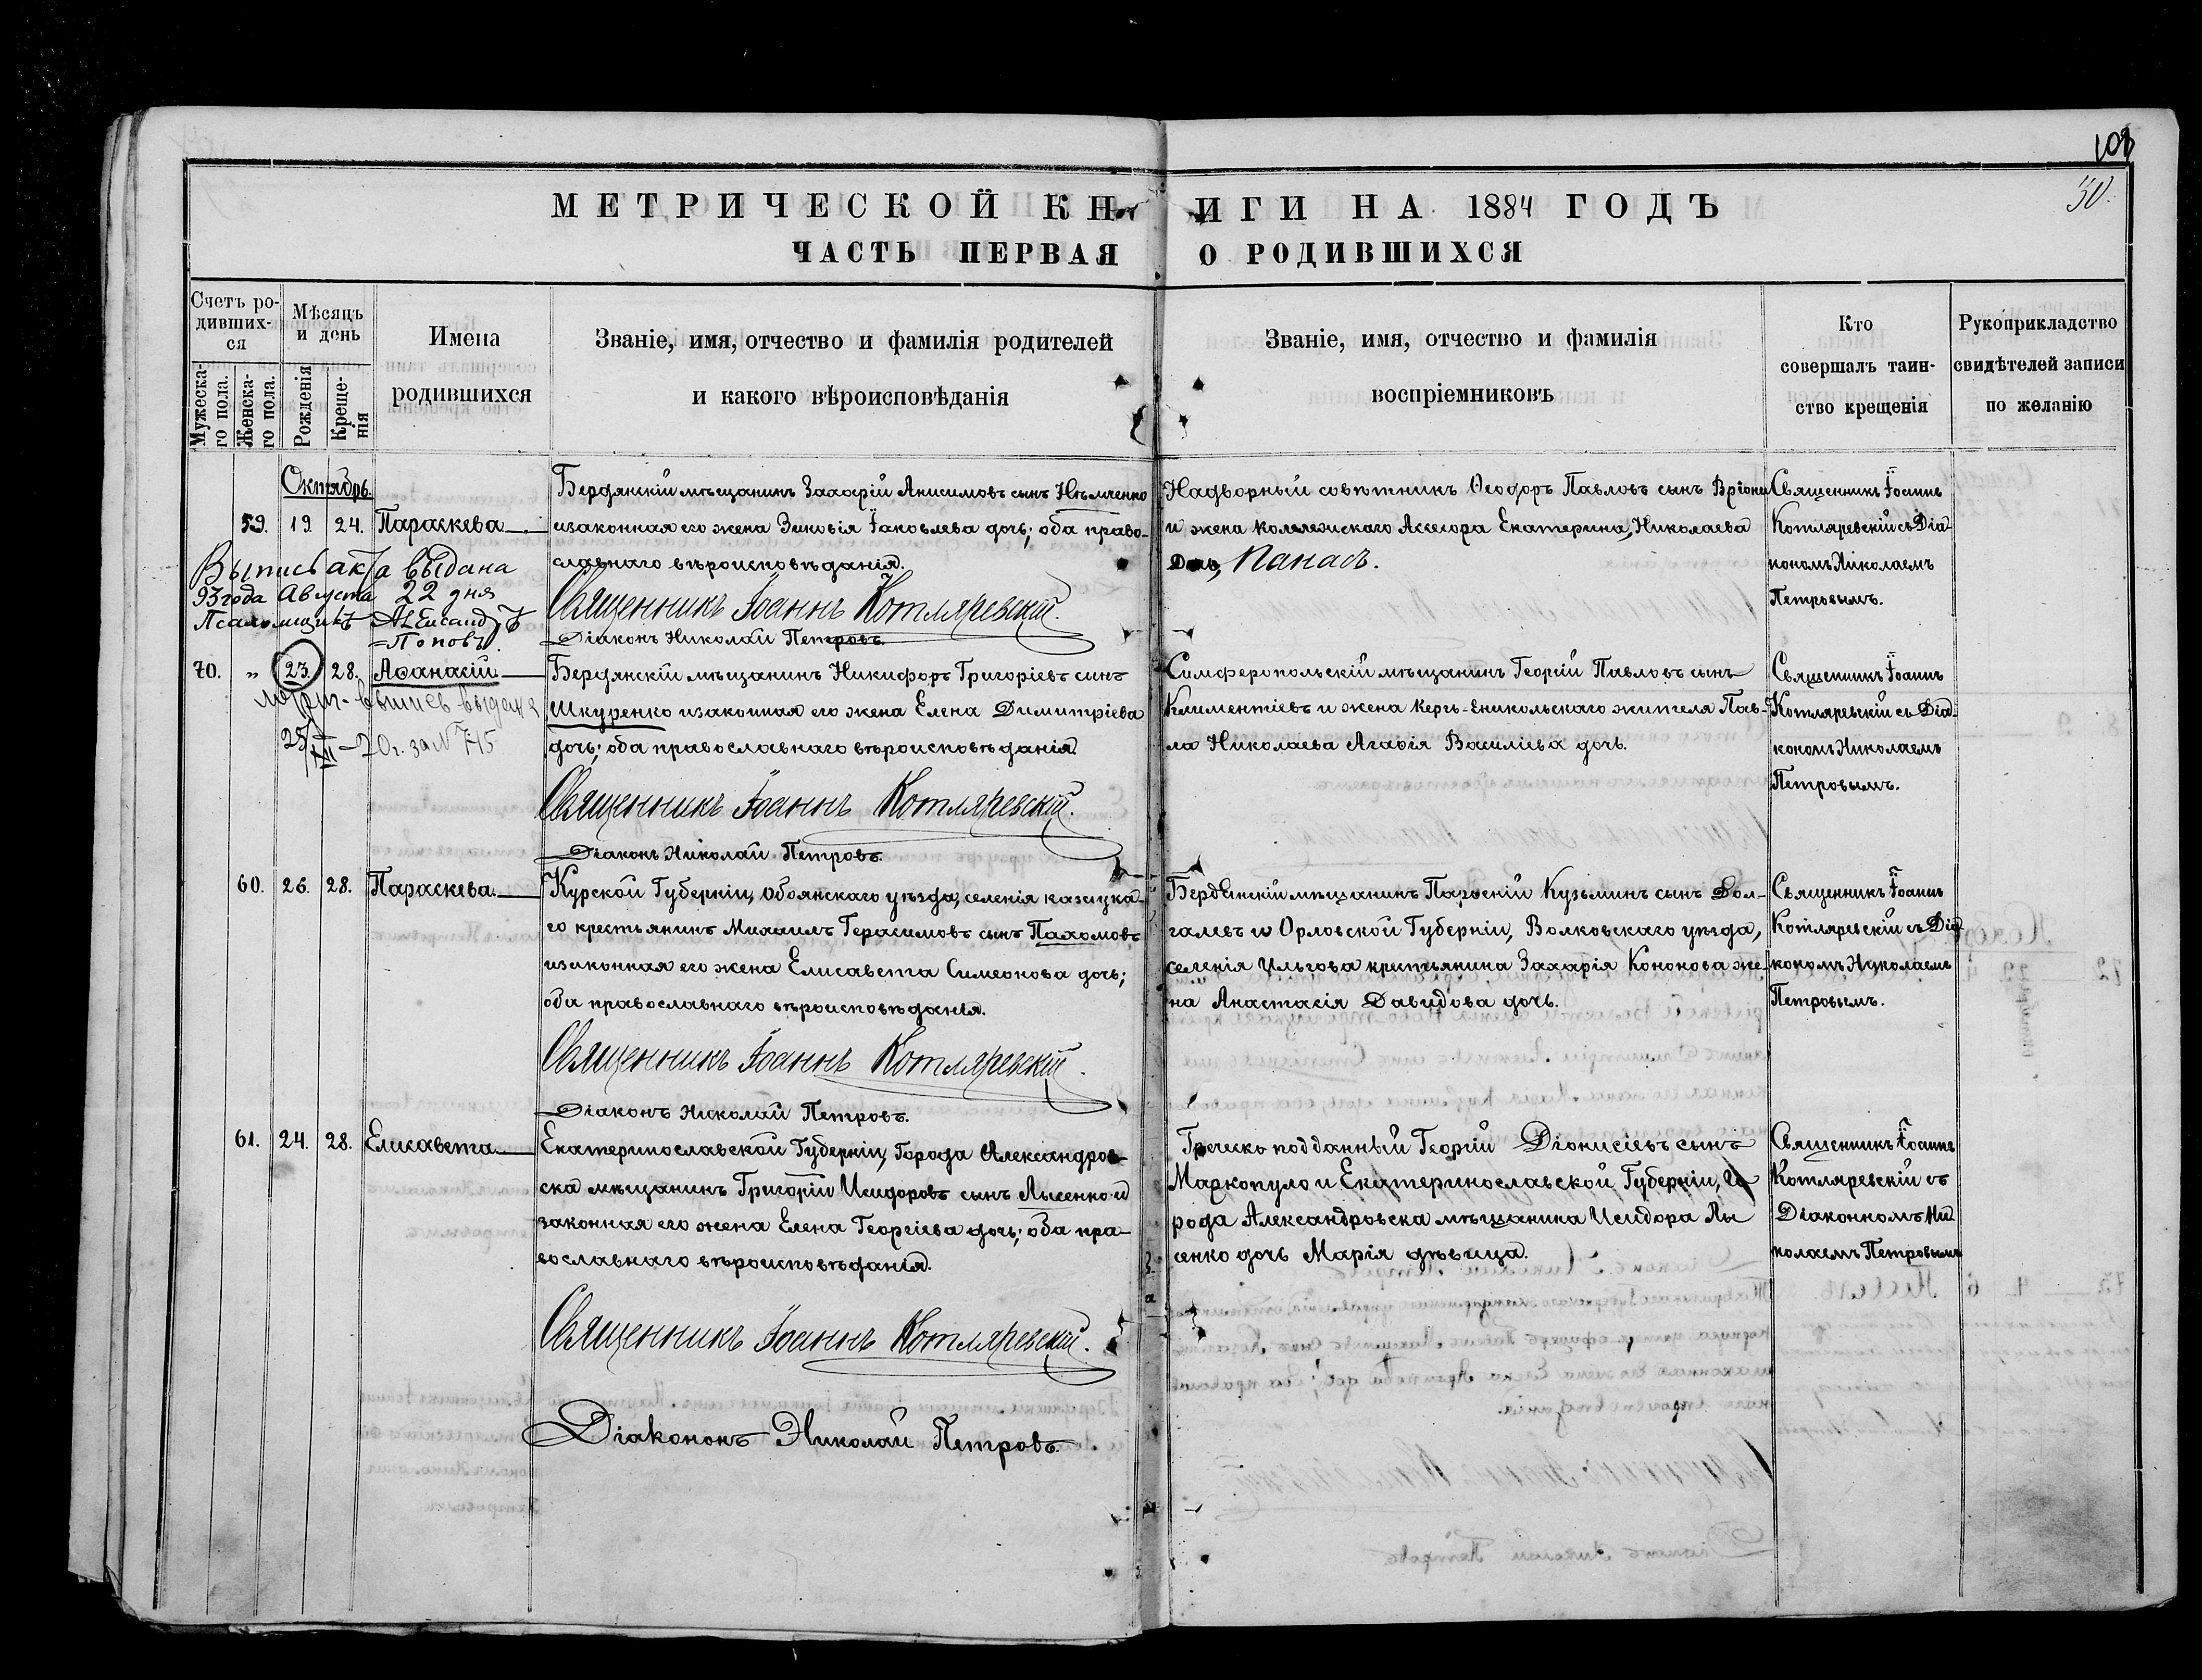 108
30.
МЕТРИЧЕСКОЙ КНИГИ НА 1884 ГОДЪ
ЧАСТЬ ПЕРВАЯ О РОДИВШИХСЯ
Счетъ ро-
дивших-
ся
Мужеска-
го пола.
Женска-
го пола.
Мѣсяцъ
и день
Рожденія
Креще-
нія
Имена
родившихся
Званіе, имя, отчество и фамилія родителей
и какого вѣроисповѣданія
Званіе, имя, отчество и фамилія
воспріемниковъ
Кто
совершалъ таин-
ство крещенія
Рукоприкладство
свидѣтелей записи
по желанію
Октябрь.
59. 19. 24. Параскева
Бердянскій мѣщанинъ Захарій Анисимовъ сынъ Нѣмченко
изаконная его жена Зиновія Іаковлева дочь; оба право-
славнаго вѣроисповѣданія.
Священникъ Іоаннъ Котляревскій.
Діаконъ Николай Петровъ.
Надворный совѣтникъ Ѳеодоръ Павловъ сынъ Вріони
и жена Коллежскаго Ассесора Екатерина, Николаева
Дочь, Панасъ.
Священникъ Іоаннъ
Котляревскій съ Діа-
кономъ Николаемъ
Петровымъ.
Выпись акта выдана
93 года Августа 22 дня
Псаломщикъ Александръ
Поповъ.
70. „ 23. 28. Аѳанасій
Бердянскій мѣщанинъ Никифоръ Григоріевъ сынъ
Шкуренко изаконная его жена Елена Димитріева
дочь; оба православнаго вѣроисповѣданія.
Священникъ Іоаннъ Котляревскій.
Діаконъ Николай Петровъ.
Симферопольскій мѣщанинъ Георгій Павловъ сынъ
Климентіевъ и жена Керчь-Еникольскаго жителя Пав-
ла Николаева Агафія Василіева дочь.
Священникъ Іоаннъ
Котляревскій съ Діа-
кономъ Николаемъ
Петровымъ.
метрич. выпись выдана
25/XII - 20 г. за № 745
60. 26. 28. Параскева.
Курской Губерніи, Обоянскаго уѣзда, селенія казацка-
го крестьянинъ Михаилъ Герасимовъ сынъ Пахомовъ
изаконная его жена Елисавета Симеонова дочь;
оба православнаго вѣроисповѣданія.
Священникъ Іоаннъ Котляревскій.
Діаконъ Николай Петровъ.
Бердянскій мѣщанинъ Парѳеній Кузьминъ сынъ Дол-
галевъ и Орловской Губерніи, Волковскаго уѣзда,
селенія Ульгова крестьянина Захарія Кононова же-
на Анастасія Давидова дочь.
Священникъ Іоаннъ
Котляревскій съ Діа-
кономъ Николаемъ
Петровымъ.
61. 24. 28. Елисавета
Екатеринославской Губерніи, Города Александров-
ска мѣщанинъ Григорій Исидоровъ сынъ Лысенко и
законная его жена Елена Георгіева дочь; оба пра-
вославнаго вѣроисповѣданія.
Священникъ Іоаннъ Котляревскій.
Діаконъ Николай Петровъ.
Греческо подданный Георгій Діонисіевъ сынъ
Маркопуло и Екатеринославской Губерніи, Го
рода Александровска мѣщанина Исидора Лы
сенко дочь Марія дѣвица.
Священникъ Іоаннъ
Котляревскій съ
Діакономъ Ни
колаемъ Петровымъ